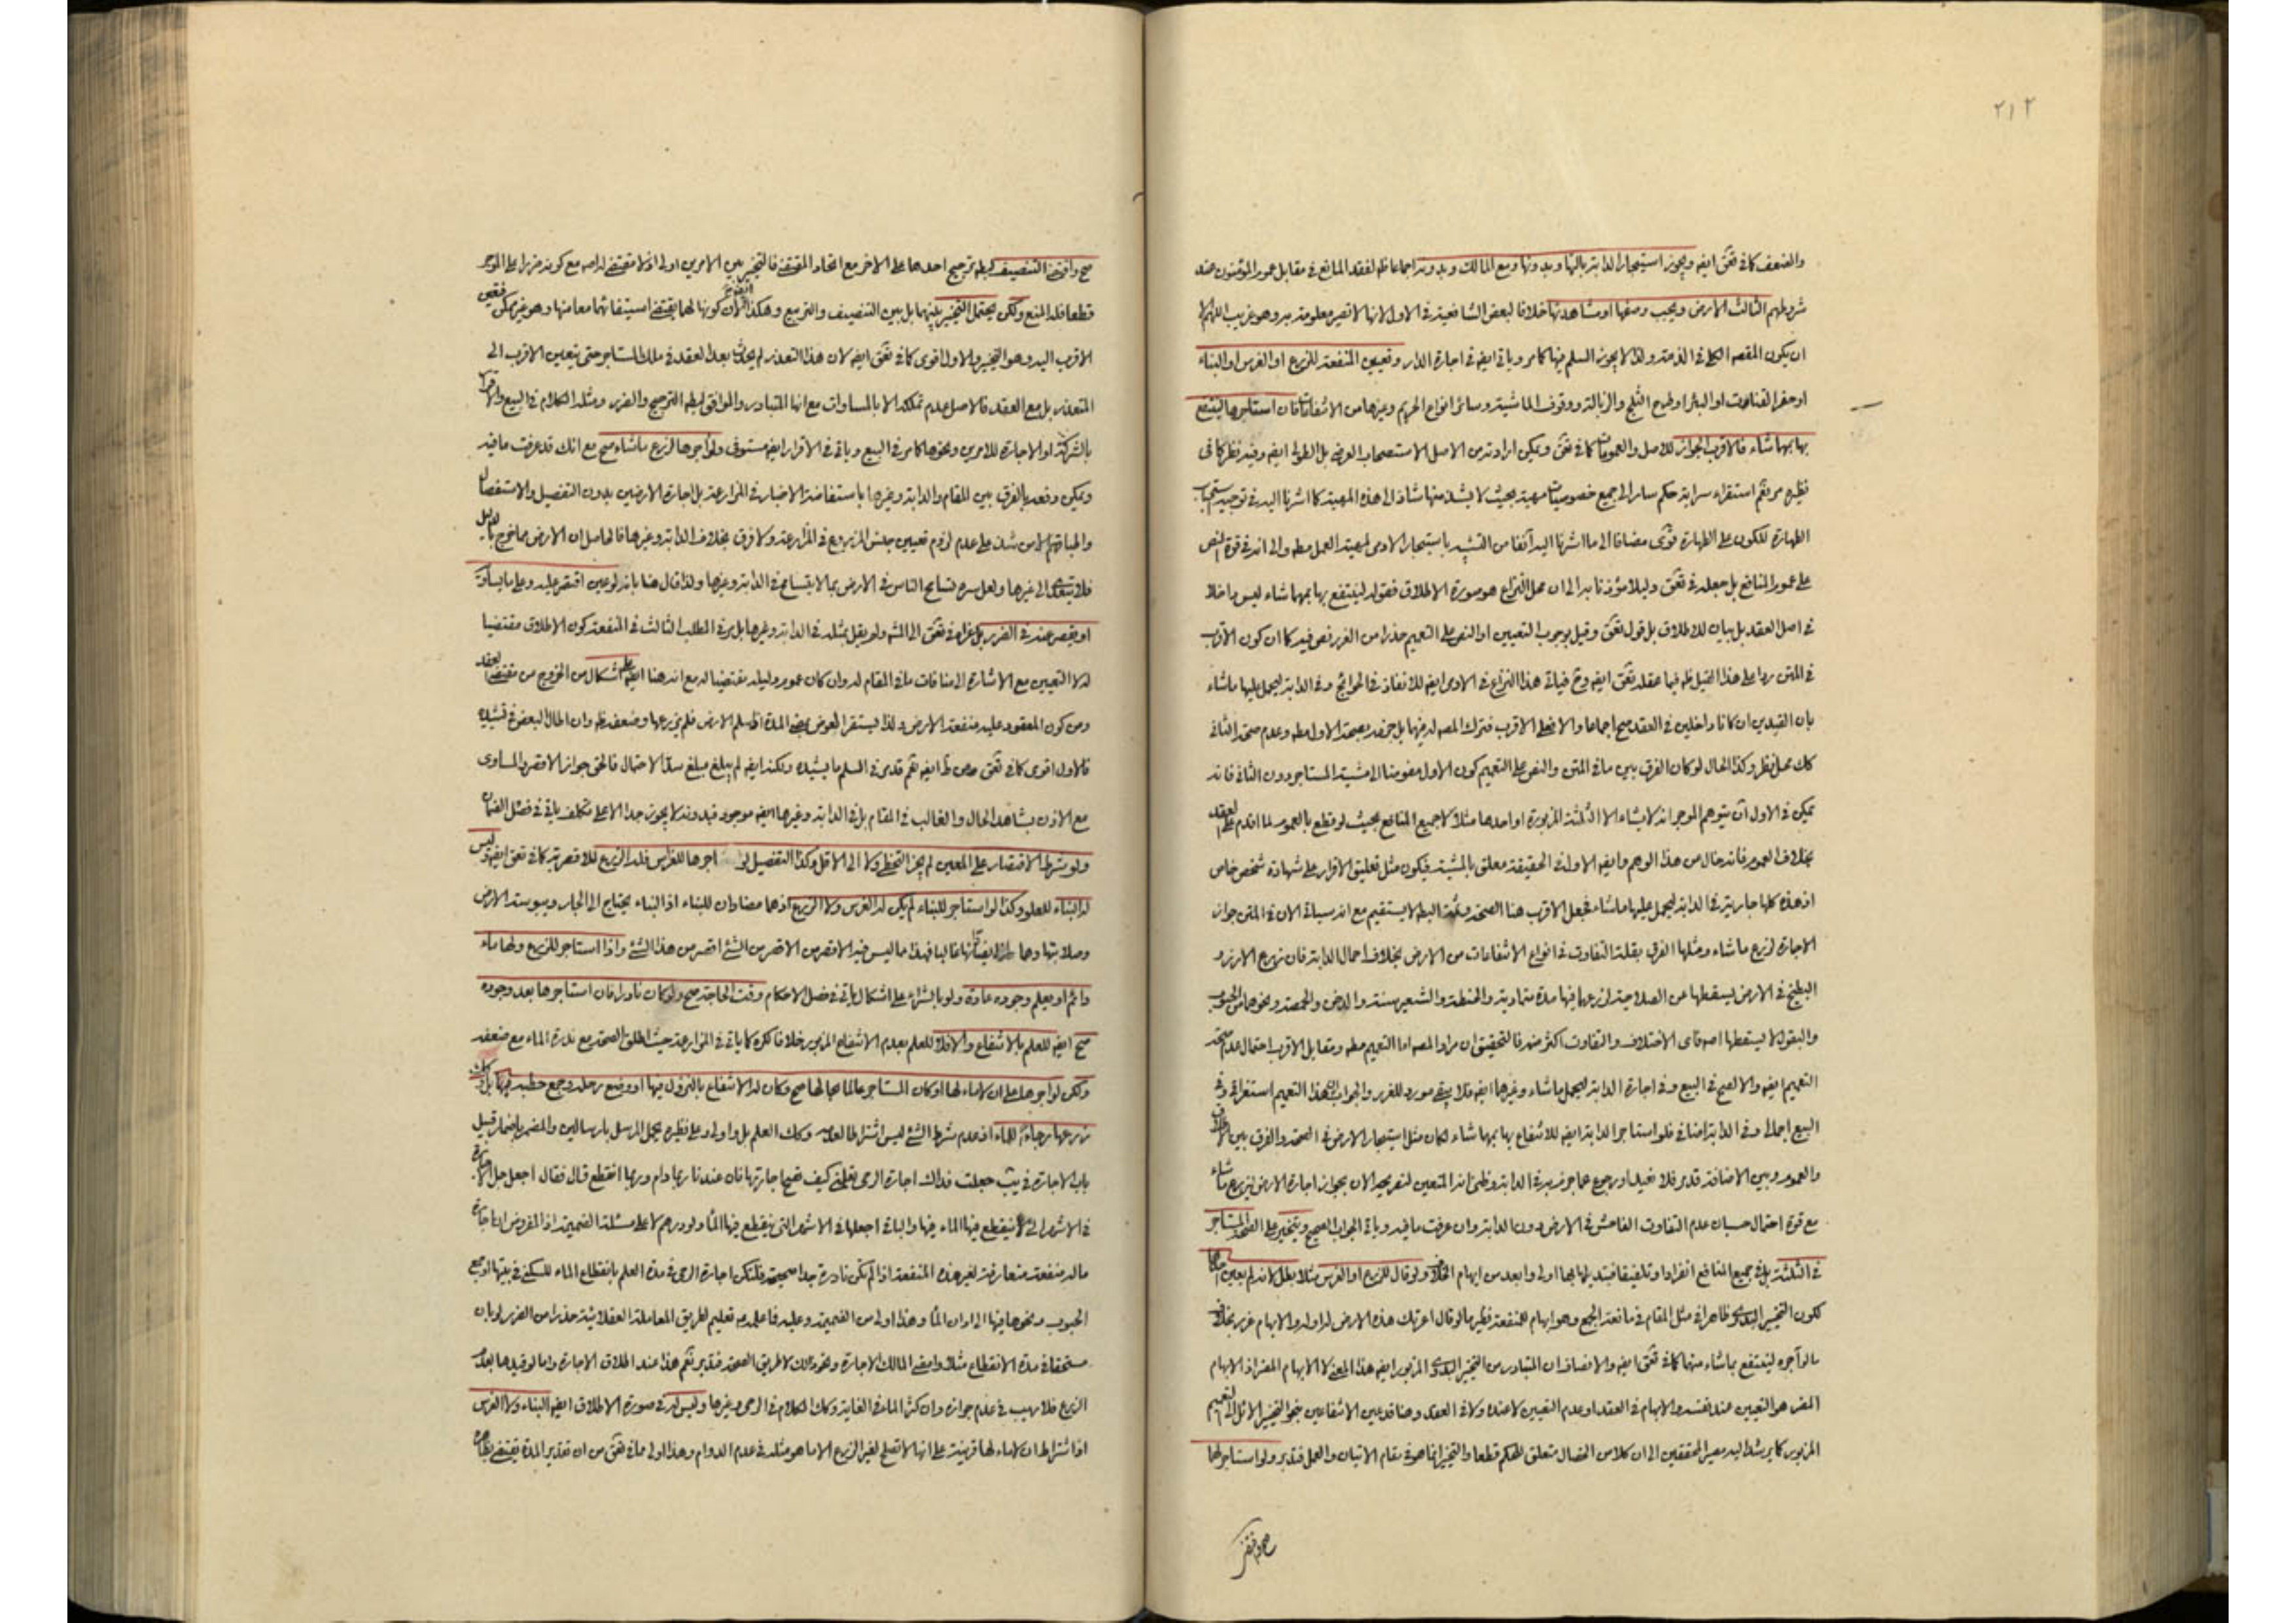 ٢١٢
والضعف كما في تعق ايضه ويجوز استيجار الدابة بالها وبدونها ومع المالك وبدونه اجماعا ظ لفقد المانع في مقابل عموم المؤمنون عند
شروطهم الثالث الارض ويجب وصفها او مشاهدتها خلافا لبعض الشافعية في الاول لانها لا تصير معلومة به وهو غريب اللهم الا
ان يكون المقصد الكلي في الذمة ولذا لا يجوز السلم فيها كما مر وياتي ايضه في اجارة الدار وتعيين المنفعة للزرع او الغرس او البناء
او حفر القنات او البئر او طرح الثلج والزبالة ووقوف الماشية وسائر انواع الحريم وغيرها من الانتفاعات فان استاجرها لينتفع
بها بمهما شاء فالاقرب الجواز للاصل والعمومات كما في تعق ويمكن ارادته من الاصل الاستصحاب العرضي بل الطولي ايضه وفيه نظر كما في
نظيره مر نعم استقراء سراية حكم سار الى جميع خصوصيات مهية بحيث لا يشذ منها شاذ الى هذه المهية كما اشرنا اليه في توجيه استحباب
الطهارة للكون على الطهارة قوى مضافا الى ما اشرنا اليه آنفا من التشبيه باستيجار الادمي لمهية العمل مطه والى انه في قوة النص
على عموم المنافع بل جعله في تعق دليلا مؤذنا به الى ان محل النزاع هو صورة الاطلاق فقوله لينتفع بها بمهما شاء ليس داخلا
في اصل العقد بل بيان للاطلاق بل قول تعق وقيل بوجوب التعيين او النص على التعميم حذرا من الغرر نص فيه كما ان كون الاقرب
في المتن ردا على هذا القيل ظ فيما عقله تعق ايضه وح فياتي هذا النزاع في الادمي ايضه للانفاذ في الحوائج وفي الدابة ليحمل عليها ما شاء
بان القيدين ان كانا داخلين في العقد صح اجماعا والا فعلى الاقرب فترك المصه له فيهما بل جزمه بصحة الاول مطه وعدم صحة الثاني
كك محل نظر وكذا الحال لو كان الفرق بين ما في المتن والنص على التعميم كون الاول مفوضا الى مشية المستاجر دون الثاني فانه
يمكن في الاول ان يتوهم الموجر انه لا يشاء الا الثلثة المزبورة او احدها مثلا لا جميع المنافع بحيث لو قطع بالعموم لما اقدم على العقد
بخلاف العموم فانه خال من هذا الوهم وايضه الاول في الحقيقة معلق بالمشية فيكون مثل تعليق الاقرار على شهادة شخص خاص
اذ هذه كلها جارية في الدابة ليحمل عليها ما شاء فجعل الاقرب هنا الصحة وثمة البطه لا يستقيم مع انه سياتي الان في المتن جواز
الاجارة لزرع ما شاء ومثلها الفرق بقلة التفاوت في انواع الانتفاعات من الارض بخلاف احمال الدابة فان زرع الارز و
البطيخ في الارض يسقطها عن الصلاحية لزرعها فيها مدة متمادية والحنطة والشعير سنة والدخن والحمصة ونحوهما من الحبوب
والبقول لا يسقطها اصه فاى الاختلاف والتفاوت اكثر منه فالتحقيق ان مراد المصه اما التعميم مطه ومقابل الاقرب احتمال عدم صحة
التعميم ايضه والا لصح في البيع وفي اجارة الدابة ليحمل ما شاء وغيرها ايضه فلا يبقى مورد للغرر والجواب ان هذا التعميم استغراقي وفي
البيع اجمالي وفي الدابة اضافي فلو استاجر الدابة ايضه للانتفاع بها بمهما شاء لكان مثل استيجار الارض في الصحة والفرق بين الاطلاق
والعموم وبين الاضافة قد مر فلا نعيد او رجوع عما جزم به في الدابة وظني انه المتعين لتصريحه الان بجواز اجارة الارض لزرع ما شاء
مع قوة احتمال حسبان عدم التفاوت الفاحش في الارض دون الدابة وان عرفت ما فيه وياتي الجواب الصحيح ويتخير على الصحة المستاجر
في الثلثة بل في جميع المنافع انفرادا وتلفيقا فتبديلها بها اولى وابعد من ايهام الخلاف ولو قال للزرع او الغرس مثلا بطل لانه لم يعين احدهما
لكون التخيير البدوي ظاهرا في مثل المقام في مانعة الجمع وهو ابهام للمنفعة نظير ما لو قال اعرتك هذه الارض له او له والابهام غرر بخلاف
ما لو آجره لينتفع بما شاء منهما كما في تعق ايضه والانصاف ان المتبادر من التخيير البدوي المزبور ايضه هذا المعنى لا الابهام المضر اذ الابهام
المضر هو التعيين عند نفسه والابهام في العقد او عدم التعيين لا عنده ولا في العقد وهنا قد عين الانتفاعين بنحو التخيير الائل الى التعميم
المزبور كما يرشد اليه مصير المحققين الى ان كلا من الخصال متعلق للحكم قطعا والتخيير انما هو في مقام الاتيان والعمل فتدبر ولو استاجر لهما
صح واقتضى التنصيف لبطه ترجيح احدهما على الاخر مع اتحاد المقتضى فالتخيير بين الامرين اولى اذ لا مقتضى له اصه مع كونه ضررا على الموجر
قطعا فله المنع ولكن يحتمل التخيير بينهما بل بين التنصيف والتربيع وهكذا ايضه لان كونها لهما يقتضي استيفائهما معا منها وهو غير ممكن فتعين
الاقرب اليه وهو التخيير والاول اقوى كما في تعق ايضه لان هذا التعذر لم يحدث بعد العقد في ملك المستاجر حتى يتعين الاقرب الى
المتعذر بل مع العقد فالاصل عدم تملكه الا بالمساوات مع انها المتبادر والموافق لبطه الترجيح والغرر ومثله الكلام في البيع والاقرار
بالشركة او الاجارة للامرين ونحوها كما مر في البيع وياتي في الاقرار ايضه مستوفى ولو آجرها لزرع ما شاء صح مع انك قد عرفت ما فيه
ويمكن دفعه بالفرق بين المقام والدابة وغيرها باستفاضة الاخبار في المزارعة بل اجارة الارضين بدون التفصيل والاستفصال
فلا يتعدى الى غيرها ولعل سره تسامح الناس في الارض بما لا يتسامح في الدابة وغيرها ولذا قال هنا بانه لو عين اقتصر عليه وعلى ما يساويه
او يقصر عنه في الضرر بل عزاه في تعق الى الشه ولم يقل بمثله في الدابة وغيرها بل مر في المطلب الثالث في المنفعة كون الاطلاق مقتضيا
له لا التعيين مع الاشارة الى منافات ما في المقام له وان كان عموم دليله مقتضيا له مع انه هنا ايضه على اشكال من الخروج من مقتضى العقد
ومن كون المعقود عليه منفعة الارض ولذا يستقر العوض بمضي المدة اذا سلم الارض فلم يزرعها وضعفه ظ وان اطال البعض في تشييده
فالاول اقوى كما في تعق ايضه نعم قد مر في السلم ما يشيده ولكنه ايضه لم يبلغ مبلغ سد الاحتمال فالحق جواز الاقصر والمساوي
مع الاذن بشاهد الحال والغالب في المقام بل في الدابة وغيرها ايضه موجود فبدونه لا يجوز جدا الا على متكلف ياتي في فصل الضمان
ولو شرط الاقتصار على المعين لم يجز التخطي ولا الى الاقل وكذا التفصيل لو اجرها للغراس فله الزرع للاقصرية كما في تعق ايضه وليس
له البناء للعلو وكذا لو استاجر للبناء لم يكن له الغرس ولا الزرع اذ هما مضادان للبناء اذ البناء يحتاج الى الجار ويبوسة الارض
دائم او يعلم وجوده عادة ولو بالشراء على اشكال ياتي في فصل الاحكام وقت الحاجة صح ولو كان نادرا فان استاجرها بعد وجوده
صح ايضه للعلم بالانتفاع والا فلا للعلم بعدم الانتفاع المزبور خلافا لكره كما ياتي في المزارعة حيث اطلق الصحة مع ندرة الماء مع ضعفه
ولكن لو اجرها على ان لا ماء لها او كان المستاجر عالما بحالها صح وكان له الانتفاع بالنزول فيها او وضع رحله وجمع حطبه فيها بل وله
زرعها رجاء للماء اذ عدم شرط الشئ ليس اشتراطا لعدمه وكك العلم بل واولى وعلى نظيره يحمل المرسل بارسالين والمضمر باضمار قبيل
باب الاجارة في يب جعلت فداك اجارة الرحى تعلمني كيف تصح اجارتها فان عندنا ربما دام وربما انقطع قال فقال اجعل جل الاجارة
في الاشهر التي لا ينقطع فيها الماء فيها والباقي اجعلها في الاشهر التي ينقطع فيها الماء ولو درهم لا على مسئلة الضميمة اذ المفروض ان اجارة
ماله منفعة متعارفة لغير هذه المنفعة اذا لم تكن نادرة جدا صحيحة فلتكن اجارة الرحى في مدة العلم بانقطاع الماء للسكنى في بيتها او جمع
الحبوب ونحوها فيها الى اوان الماء وهذا اولى من الضميمة وعليه فاعله مه تعليم لطريق المعاملة العقلائية حذرا من الغرر لو بان
مستحقا في مدة الانقطاع مثلا وامضى المالك الاجارة ونحو ذلك لا طريق الصحة فتدبر نعم هذا عند اطلاق الاجارة واما لو قيدها بعدم
الزرع فلا ريب في عدم جوازه وان كثر الماء في الغاية وكك الكلام في الرحى وغيرها وليس له في صورة الاطلاق ايضه البناء ولا الغرس
اذ اشتراط ان لا ماء لها قرينة على انها لا تصلح لغير الزرع الا ما هو مثله في عدم الدوام وهذا اولى مما في تعق من ان تقدير المدة يقتضي ظاهره